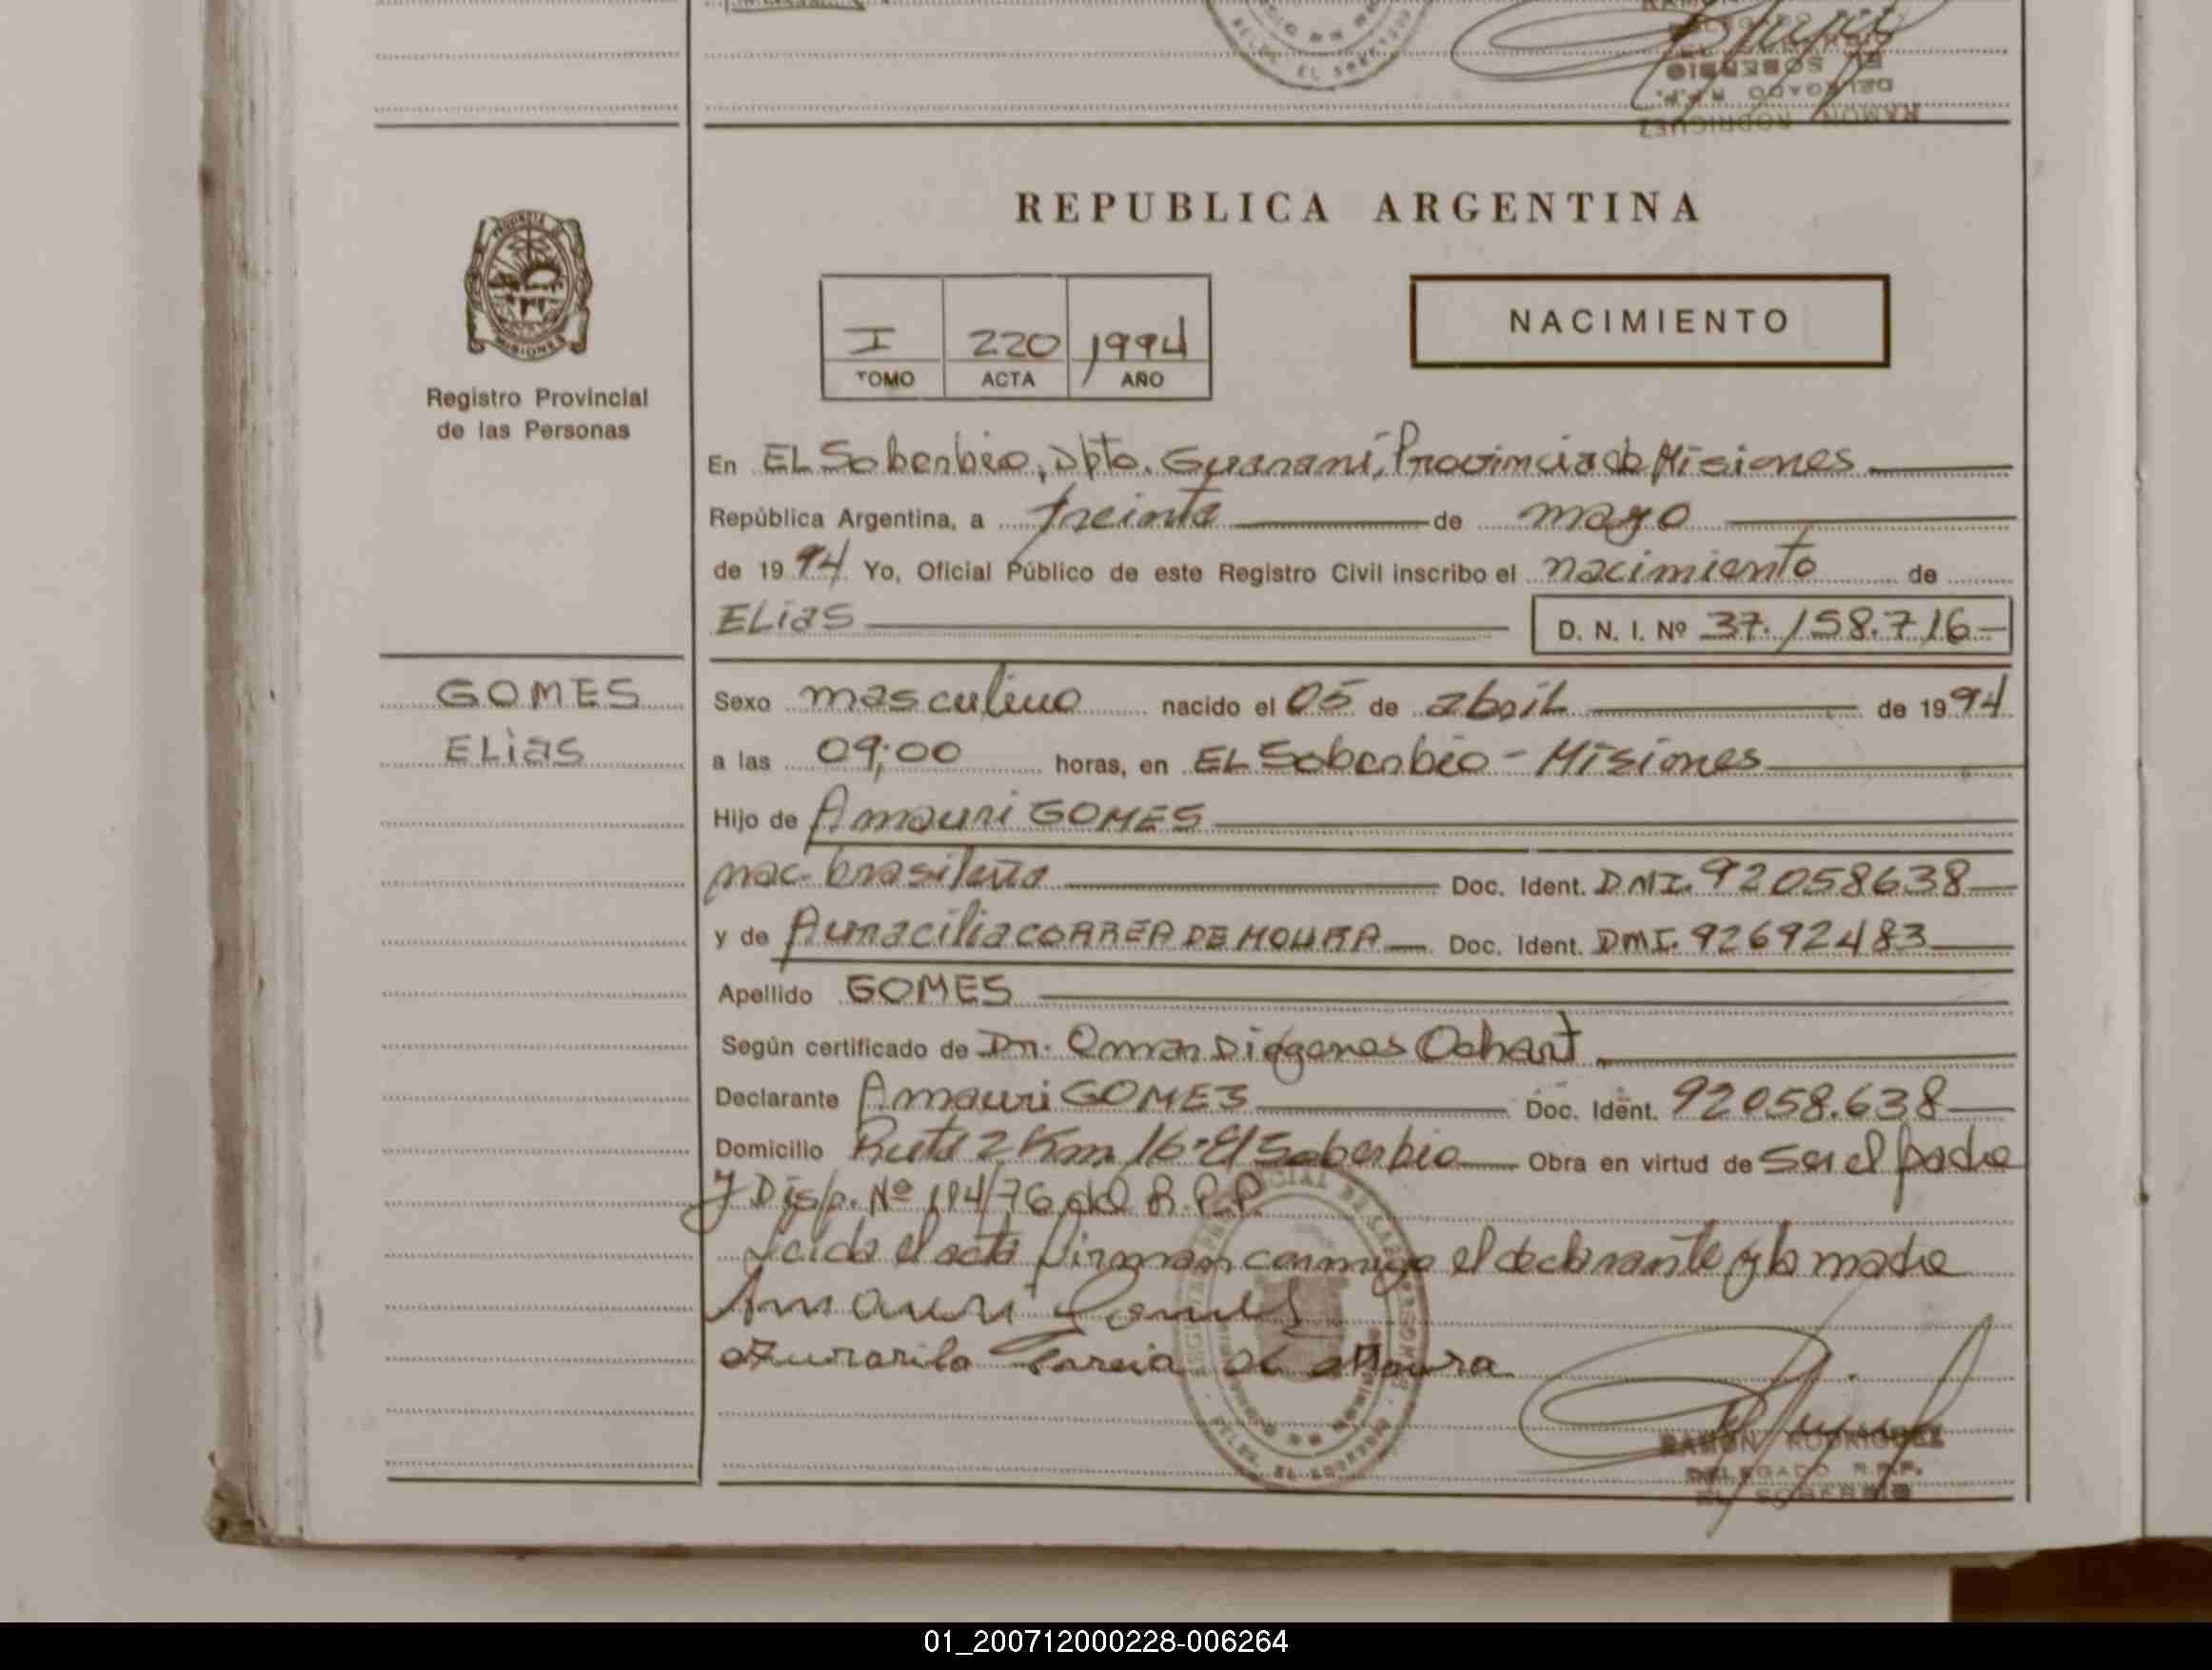 REPUBLICA ARGENTINA
I 220 1994
TOMO ACTA AÑO
NACIMIENTO
Registro Provincial
de las Personas
En EL Soberbio, Dpto. Guarani, Provincia de Misiones
República Argentina, a treinta de mayo
de 1994 Yo, Oficial Público de este Registro Civil inscribo el nacimiento de
ELias D. N. I. Nº 37.158.716
GOMES
ELias
Sexo masculino nacido el 05 de abril de 1994
a las 09:00 horas, en EL Soberbio - Misiones
Hijo de Amauri GOMES
nac. brasileña Doc. Ident. DNI. 92058638
y de CORREA DE MOURA Doc. Ident. DNI. 92692483
Apellido GOMES
Según certificado de Dr. Omar Diógenes
Declarante Amauri GOMES Doc. Ident. 92058.638
Domicilio Ruta 2 Km 16 - El Soberbio Obra en virtud de ser el padre
y Disp. Nº 76 del R.P.P.
Leida el acta firman conmigo el declarante y la madre
Amauri Gomes
de Moura
RAMON RODRIGUEZ
DELEGADO R.P.P.
EL SOBERBIO
01_200712000228-006264